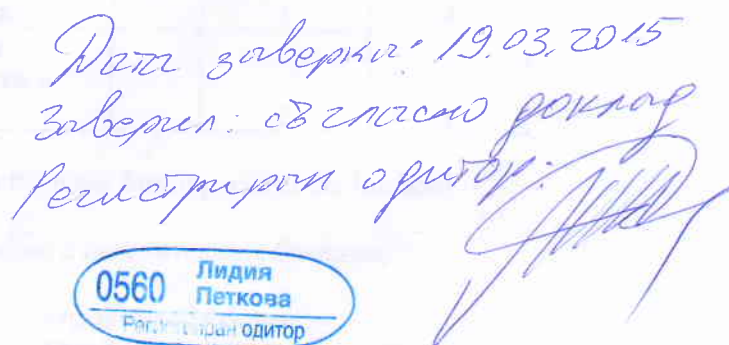 Дата заверка: 19.03.2015
Заверил: съгласно доклад
Регистриран одитор:
0560 Лидия
Петкова
Регистриран одитор